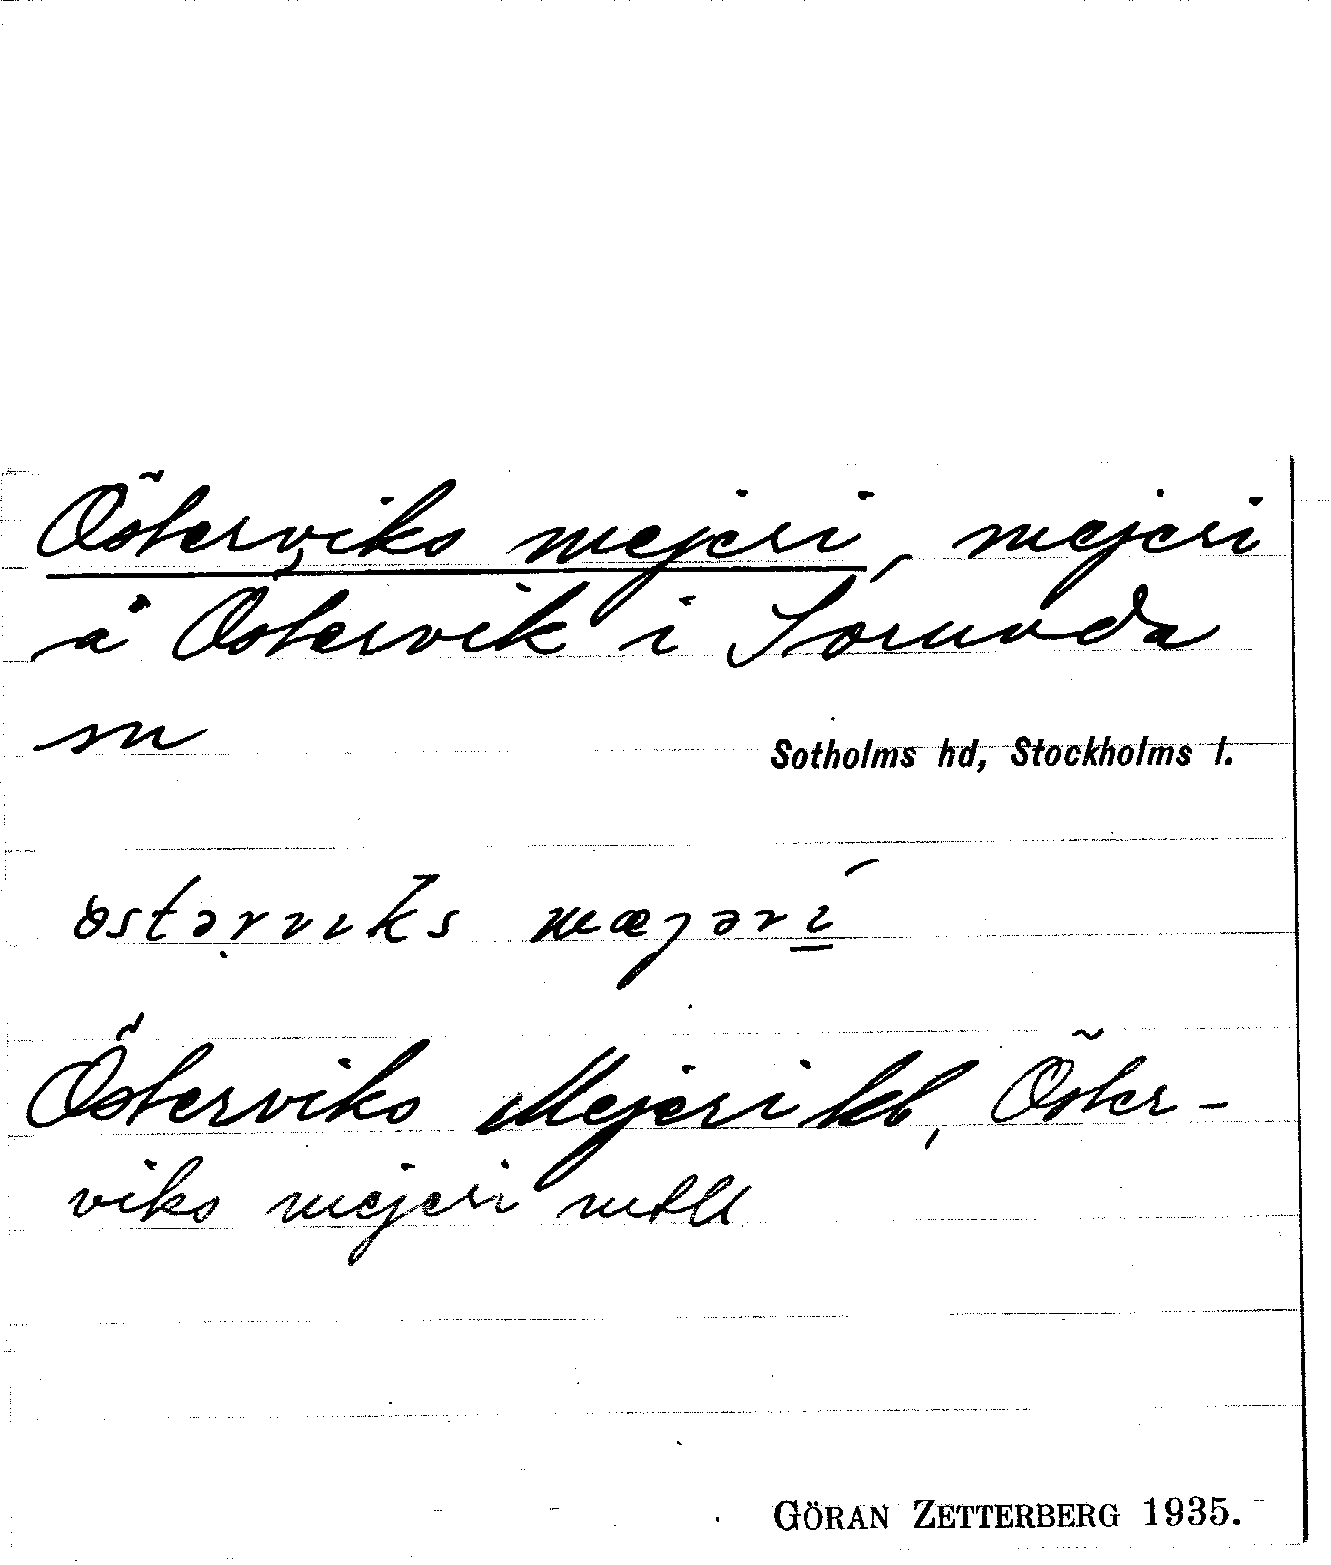 Österviks mejeri, mejeri
å Östervik i Sorunda
sn
Sotholms hd, Stockholms l.
Österviks Mejeri kb, Öster-
viks mejeri
GÖRAN ZETTERBERG 1935.